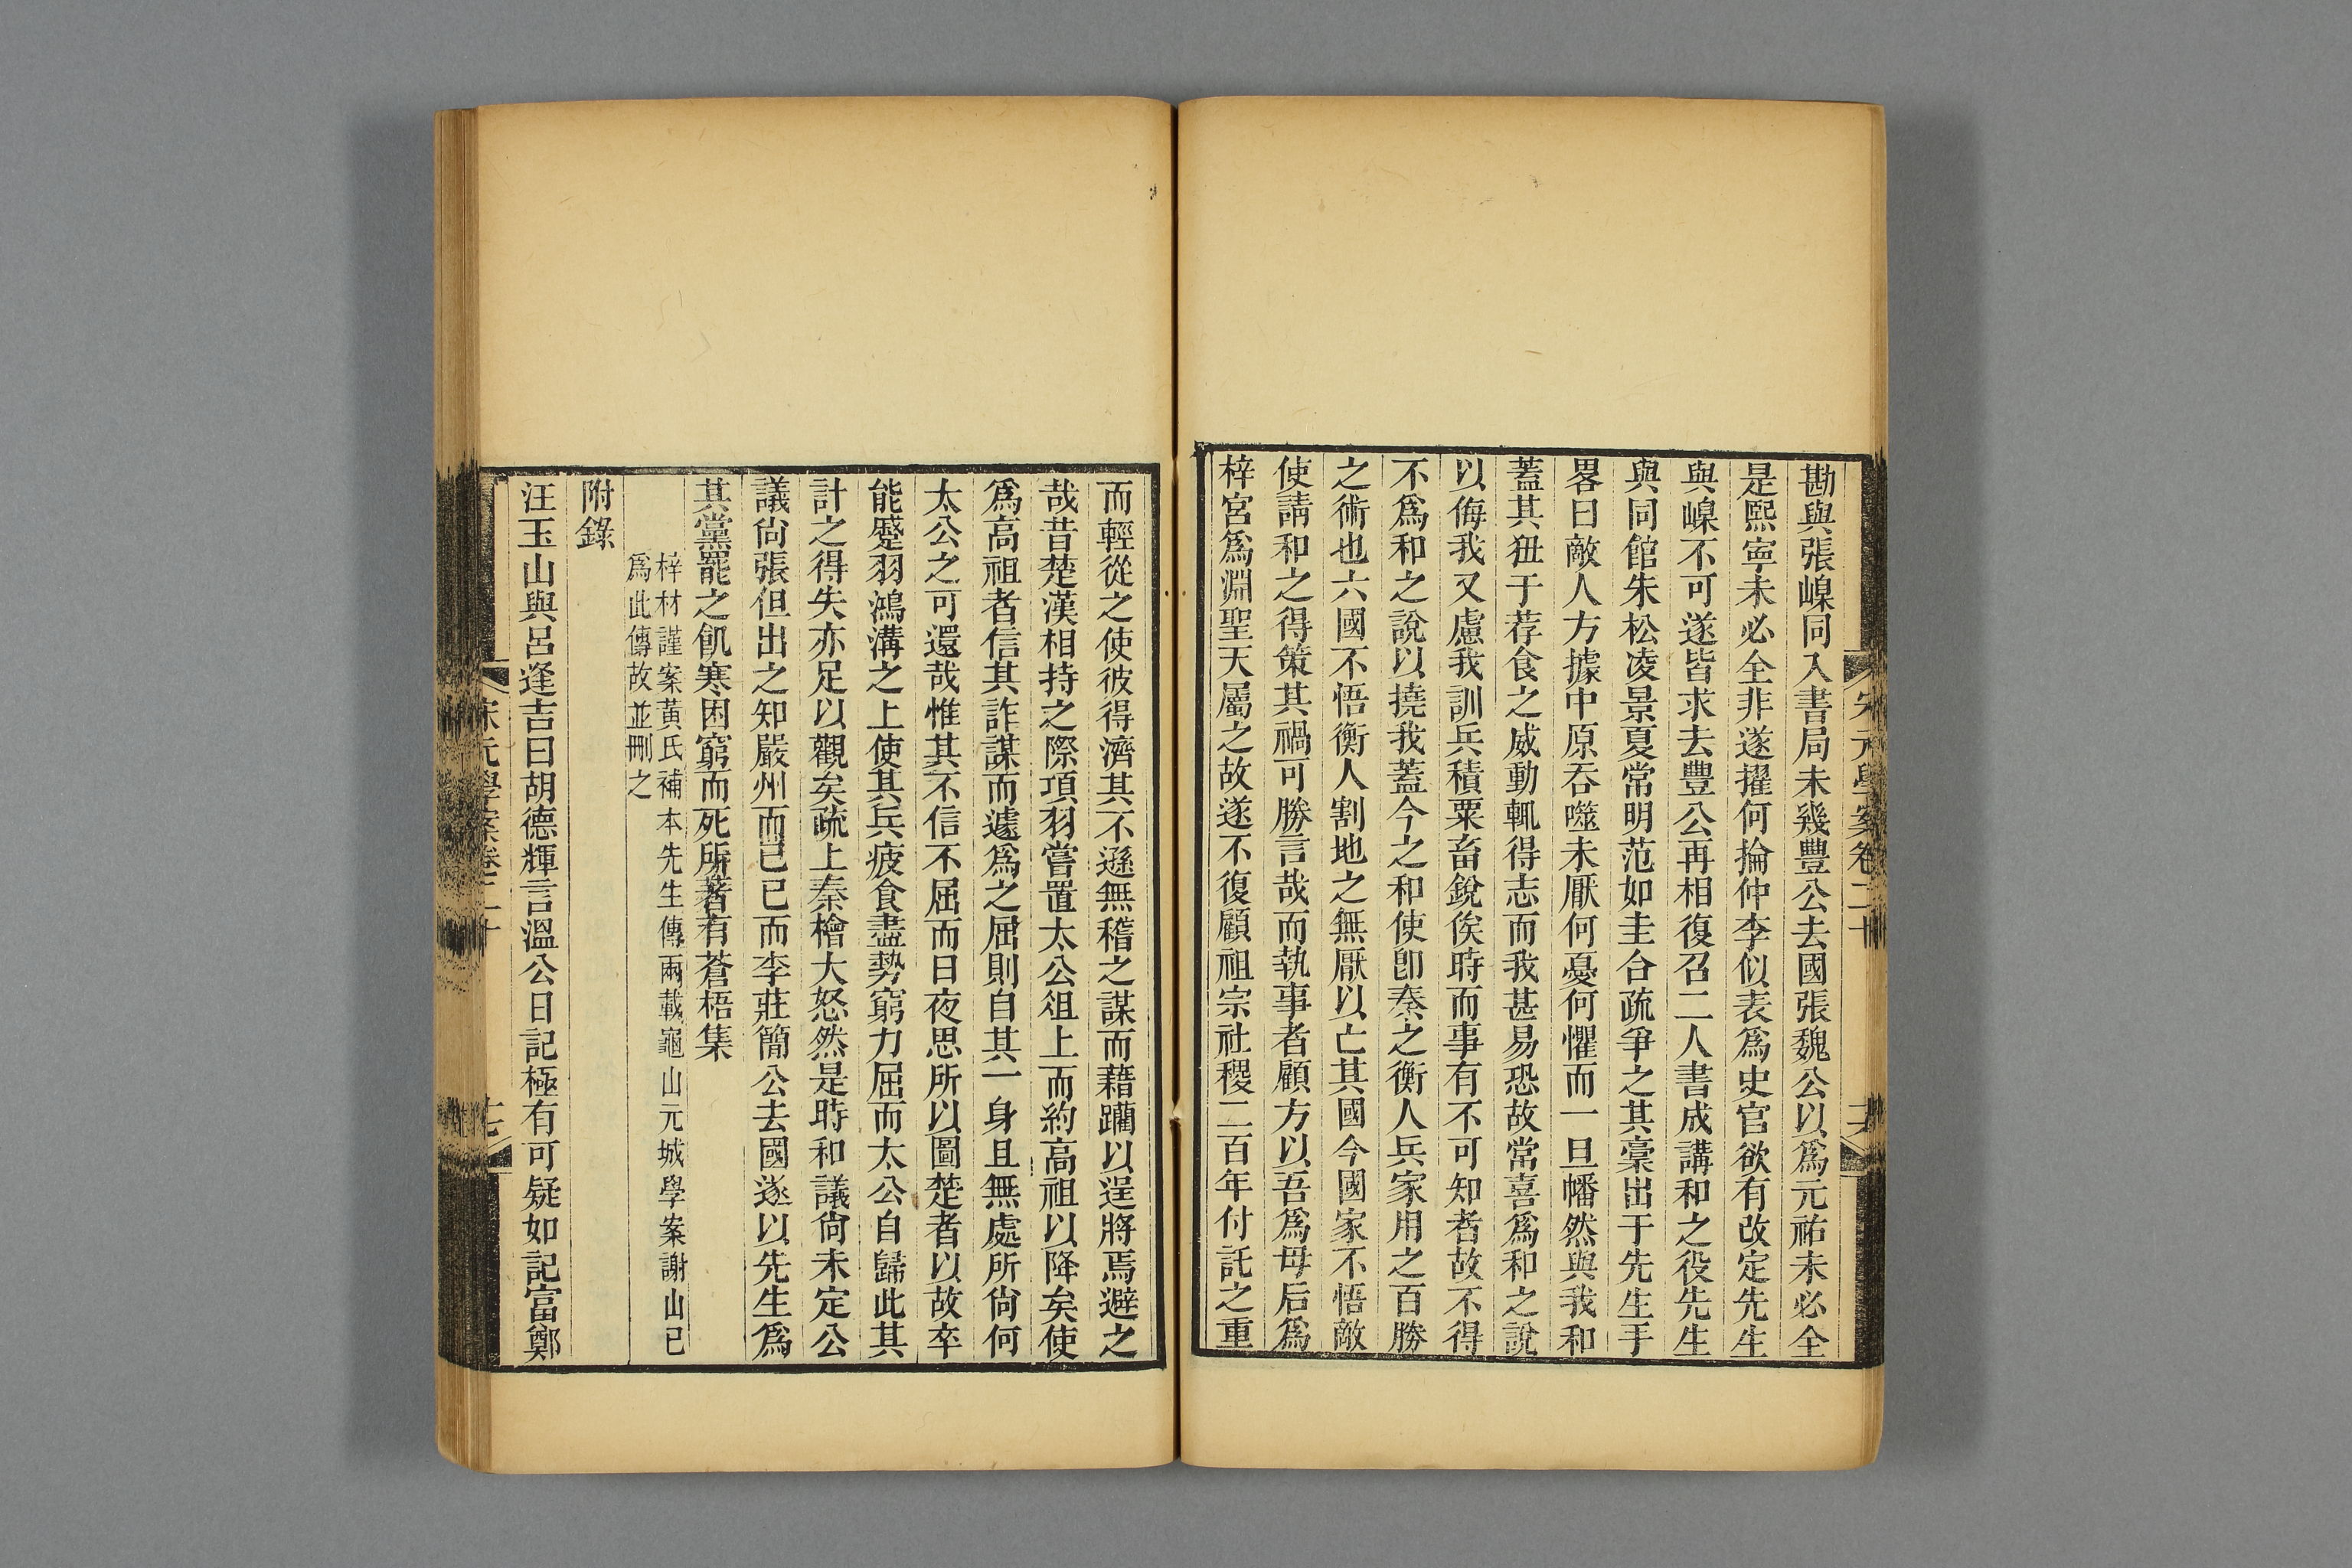 宋元學案卷二十
勘與張嵲同入書局未幾豐公去國張魏公以爲元祐未必全
是熙寧未必全非遂擢何掄仲李似表爲史官欲有改定先生
與嵲不可遂皆求去豐公再相復召二人書成講和之役先生
與同館朱松凌景夏常明范如圭合疏爭之其稾出于先生手
畧曰敵人方據中原吞噬未厭何憂何懼而一旦幡然與我和
蓋其狃于荐食之威動輒得志而我甚易恐故常喜爲和之說
以侮我又慮我訓兵積粟畜銳俟時而事有不可知者故不得
不爲和之說以撓我蓋今之和使卽秦之衡人兵家用之百勝
之術也六國不悟衡人割地之無厭以亡其國今國家不悟敵
使請和之得策其禍可勝言哉而執事者顧方以吾爲母后爲
梓宮爲淵聖天屬之故遂不復顧祖宗社稷二百年付託之重
而輕從之使彼得濟其不遜無稽之謀而藉躪以逞將焉避之
哉昔楚漢相持之際項羽嘗置太公俎上而約高祖以降矣使
爲高祖者信其詐謀而遽爲之屈則自其一身且無處所尙何
太公之可還哉惟其不信不屈而日夜思所以圖楚者以故卒
能蹙羽鴻溝之上使其兵疲食盡勢窮力屈而太公自歸此其
計之得失亦足以觀矣疏上秦檜大怒然是時和議尙未定公
議尙張但出之知嚴州而已已而李莊簡公去國遂以先生爲
其黨罷之飢寒困窮而死所著有蒼梧集
梓材謹案黃氏補本先生傳兩載龜山元城學案謝山已
爲此傳故並刪之
附錄
汪玉山與呂逢吉曰胡德輝言溫公日記極有可疑如記富鄭
宋元學案卷二十
十七